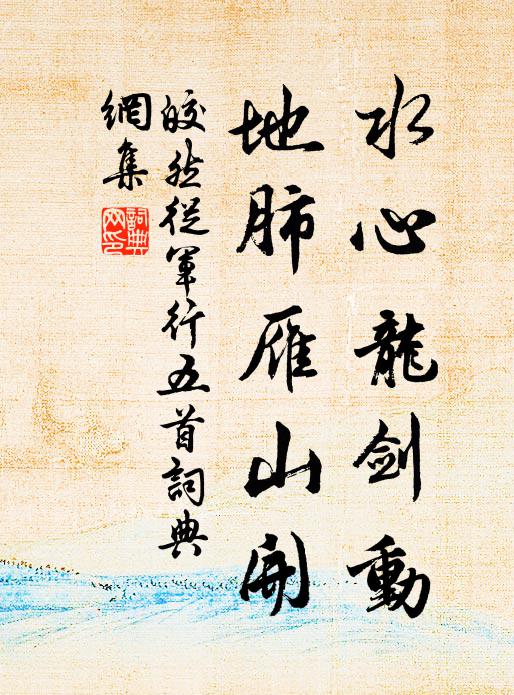 水心龍劍動
地肺雁山開
皎然從軍行五首詞典
網集
詞典
网印